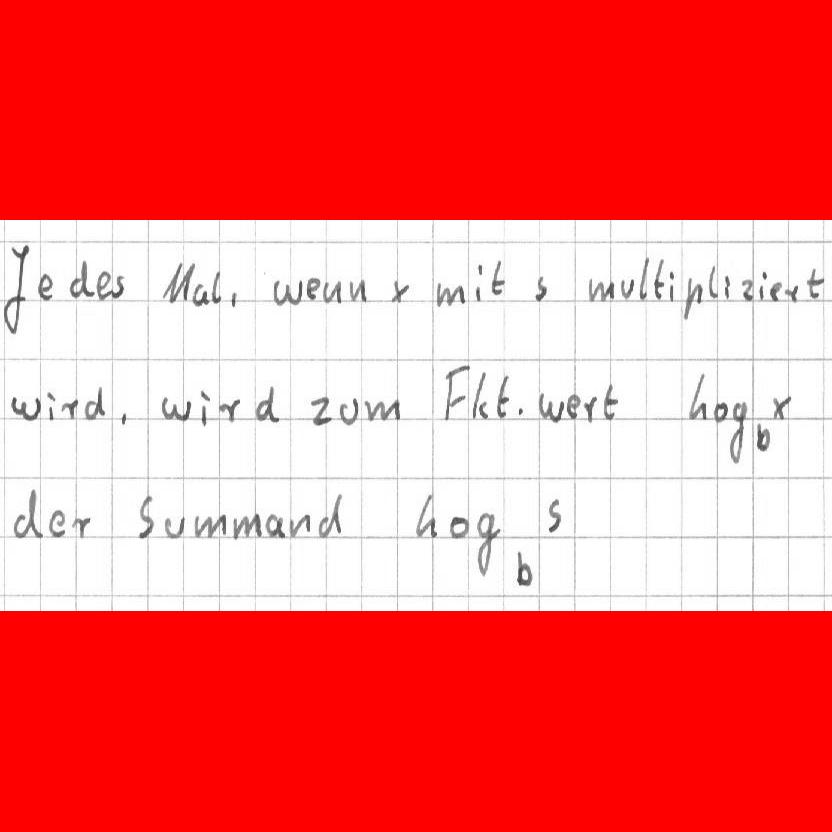 Jedes Mal, wenn x mit s multipliziert
wird, wird zum Fkt.wert hog_b x
der Summand hog_b s